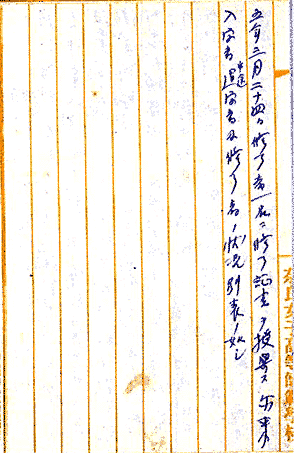 五年三月二十四日修了者一名ニ修了証書ヲ授与ス 尓来
入学者中途退学者及修了者ノ状況別表ノ如シ
奈良女子高等師範学校